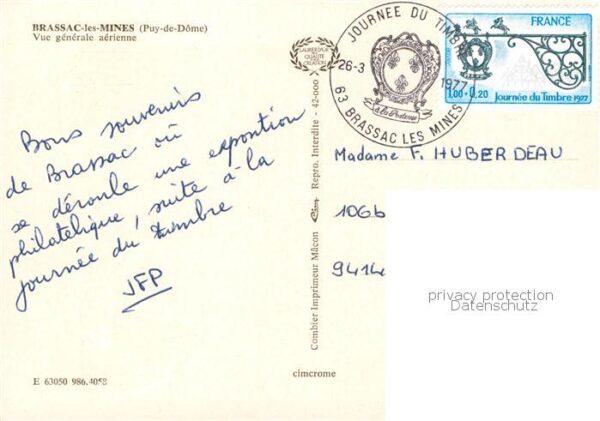 BRASSAC-les-MINES (Puy-de-Dôme)
Vue générale aérienne
Bons souvenirs
de Brassac où
se déroule une expontion
philatelique, suite à la
journée du timbre
JFP
E 63050 986.4058
Combier Imprimeur Mâcon Cim Repro. Interdite - 42-000
cimcrome
LAURÉAT
QUALITÉ
CRÉATION
JOURNEE DU TIMBRE
26-3 1977
à la Poste
63 BRASSAC LES MINES
FRANCE
1,00+0,20 Journée du Timbre 1977
Madame F. HUBERDEAU
106b
9414
privacy protection
Datenschutz